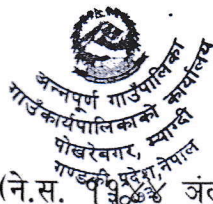 अन्नपूर्ण गाउँपालिका
गाउँकार्यपालिकाको कार्यालय
पोखरेबगर, म्याग्दी
गण्डकी प्रदेश, नेपाल
(ने.स.